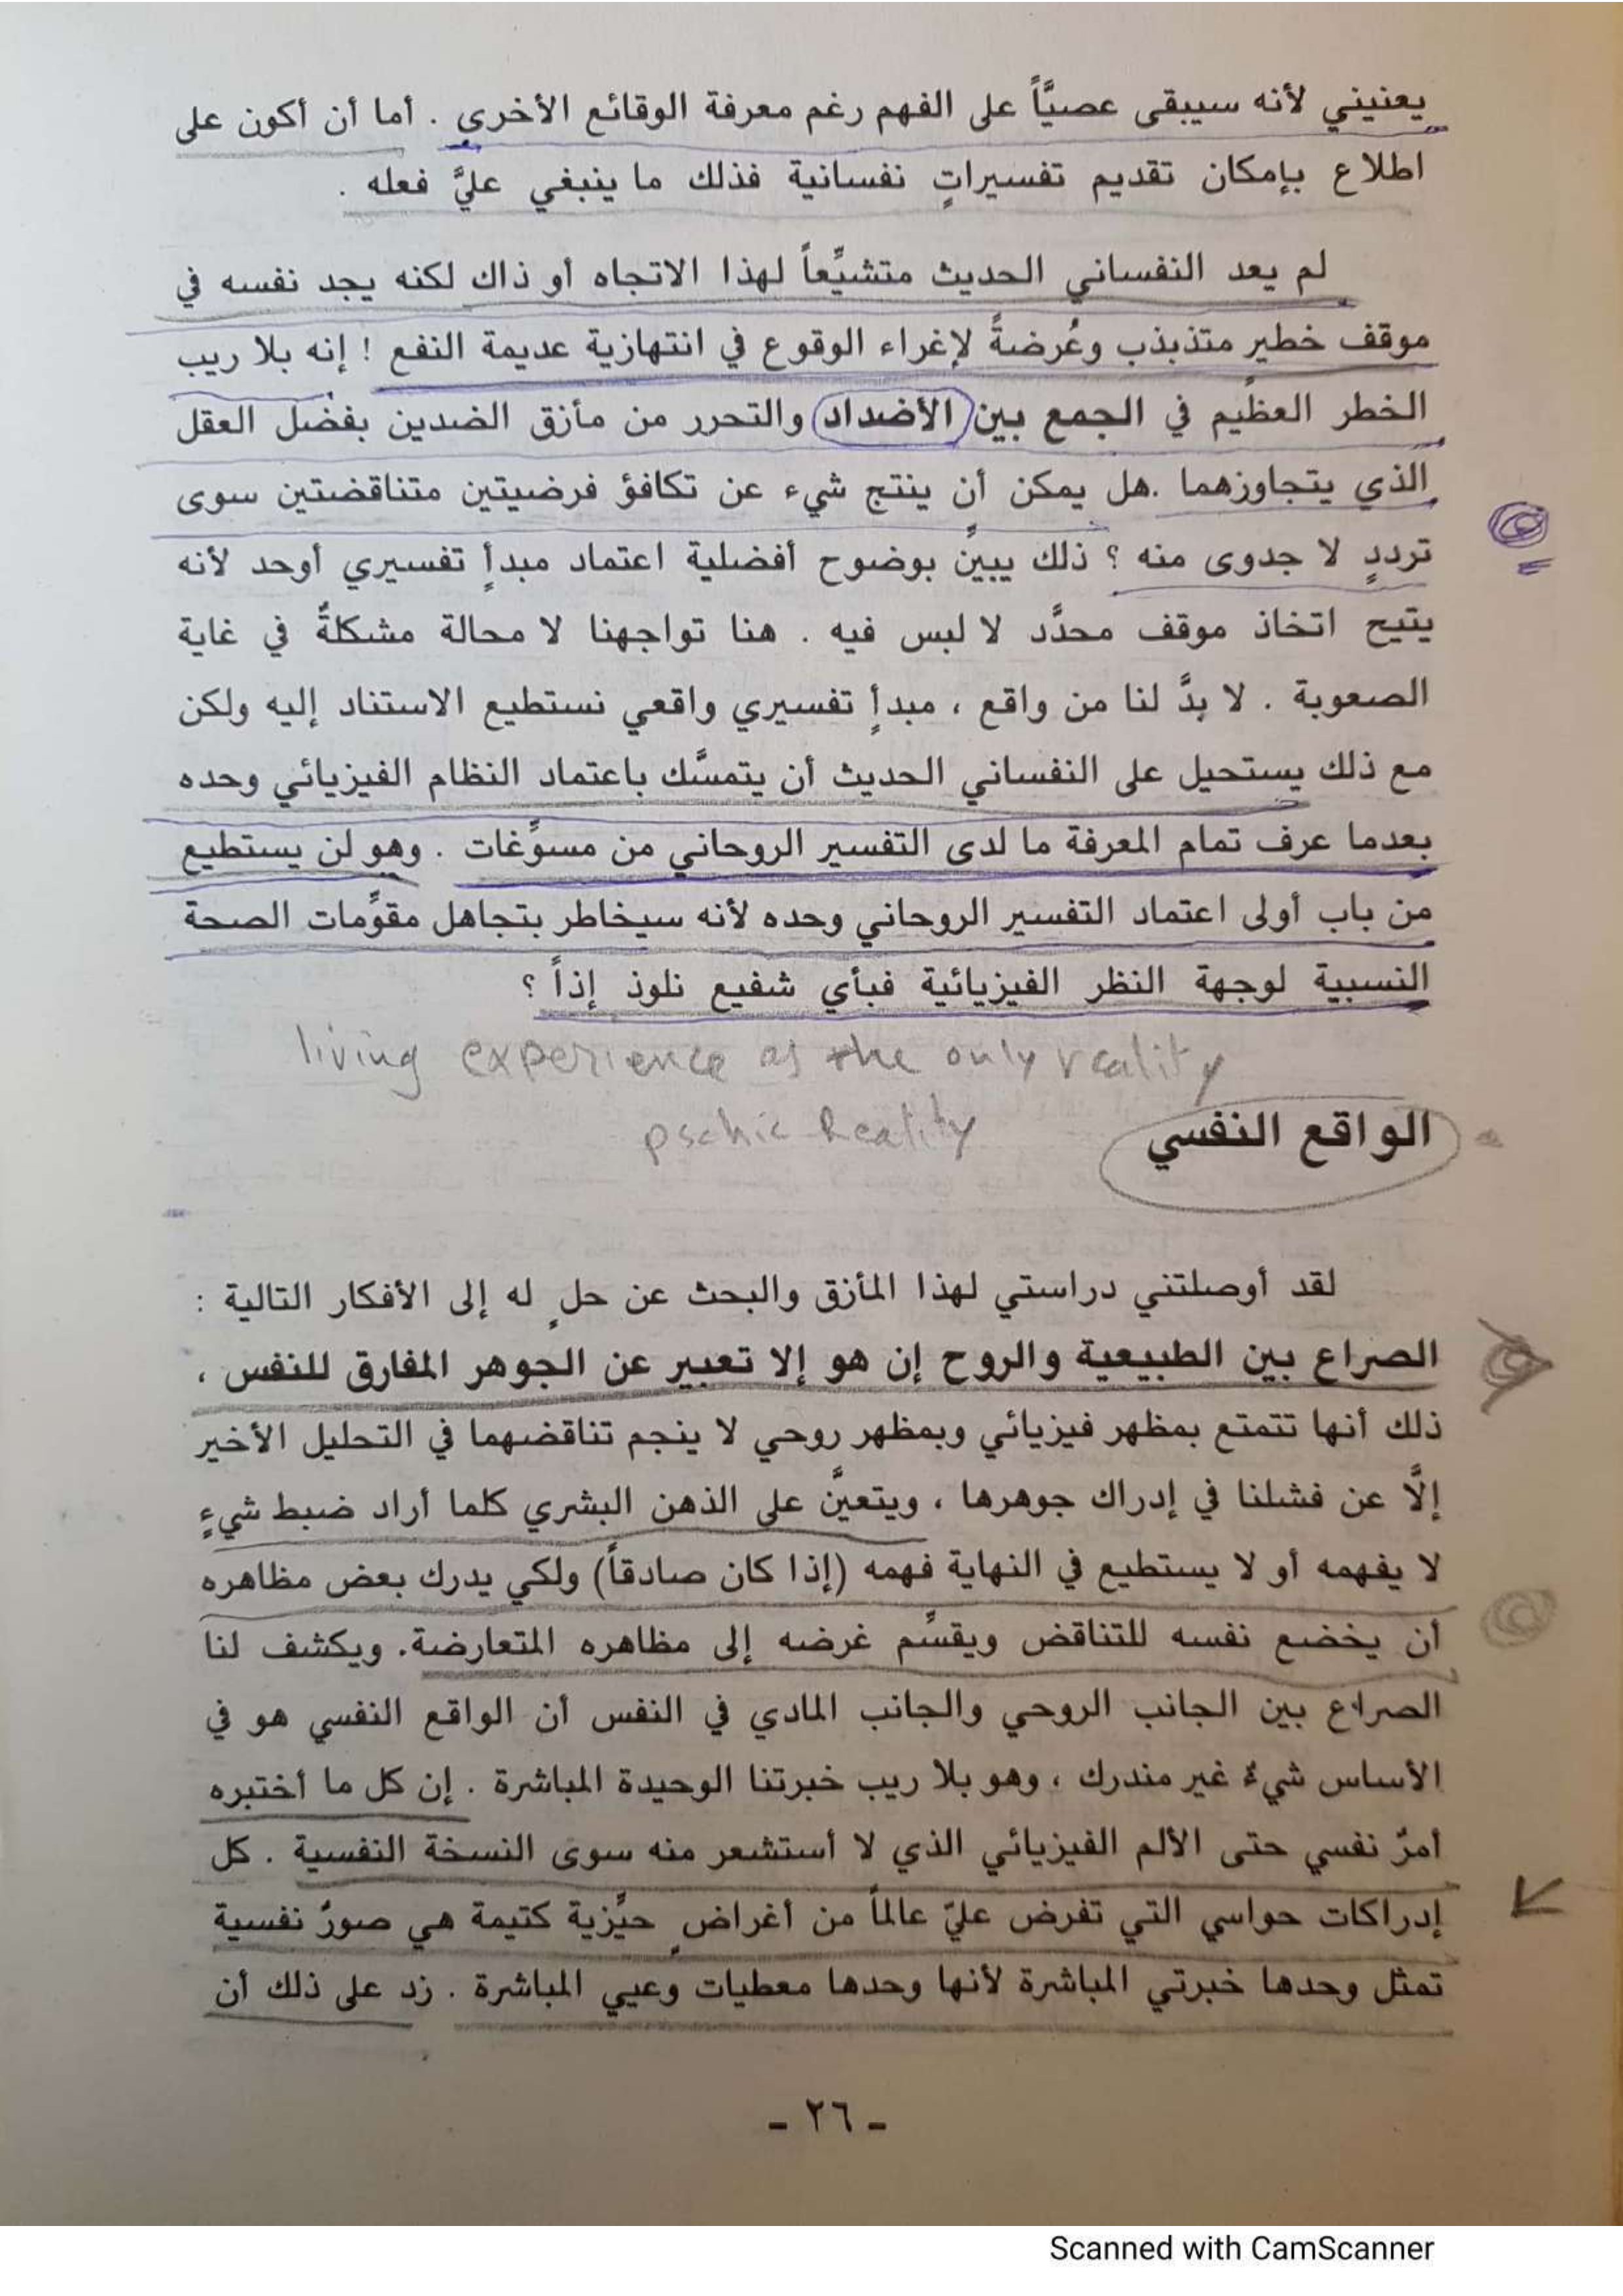 يعنيني لأنه سيبقى عصيًّاً على الفهم رغم معرفة الوقائع الأخرى . أما أن أكون على
اطلاع بإمكان تقديم تفسيراتٍ نفسانية فذلك ما ينبغي عليَّ فعله .
لم يعد النفساني الحديث متشيِّعاً لهذا الاتجاه أو ذاك لكنه يجد نفسه في
موقف خطير متذبذب وعُرضةً لإغراء الوقوع في انتهازية عديمة النفع ! إنه بلا ريب
الخطر العظيم في الجمع بين الأضداد والتحرر من مأزق الضدين بفضل العقل
الذي يتجاوزهما .هل يمكن أن ينتج شيء عن تكافؤ فرضيتين متناقضتين سوى
ترددٍ لا جدوى منه ؟ ذلك يبينّ بوضوح أفضلية اعتماد مبدأٍ تفسيري أوحد لأنه
يتيح اتخاذ موقف محدَّد لا لبس فيه . هنا تواجهنا لا محالة مشكلةٌ في غاية
الصعوبة . لا بدَّ لنا من واقع ، مبدأٍ تفسيري واقعي نستطيع الاستناد إليه ولكن
مع ذلك يستحيل على النفساني الحديث أن يتمسَّك باعتماد النظام الفيزيائي وحده
بعدما عرف تمام المعرفة ما لدى التفسير الروحاني من مسوِّغات . وهو لن يستطيع
من باب أولى اعتماد التفسير الروحاني وحده لأنه سيخاطر بتجاهل مقوِّمات الصحة
النسبية لوجهة النظر الفيزيائية فبأي شفيع نلوذ إذاً ؟
living experience as the only reality
pschic Reality
الواقع النفسي
لقد أوصلتني دراستي لهذا المأزق والبحث عن حلٍ له إلى الأفكار التالية :
الصراع بين الطبيعية والروح إن هو إلا تعبير عن الجوهر المفارق للنفس ،
ذلك أنها تتمتع بمظهر فيزيائي وبمظهر روحي لا ينجم تناقضهما في التحليل الأخير
إلَّا عن فشلنا في إدراك جوهرها ، ويتعينَّ على الذهن البشري كلما أراد ضبط شيءٍ
لا يفهمه أو لا يستطيع في النهاية فهمه (إذا كان صادقاً) ولكي يدرك بعض مظاهره
أن يخضع نفسه للتناقض ويقسِّم غرضه إلى مظاهره المتعارضة. ويكشف لنا
الصراع بين الجانب الروحي والجانب المادي في النفس أن الواقع النفسي هو في
الأساس شيءٌ غير مندرك ، وهو بلا ريب خبرتنا الوحيدة المباشرة . إن كل ما أختبره
أمرٌ نفسي حتى الألم الفيزيائي الذي لا أستشعر منه سوى النسخة النفسية . كل
إدراكات حواسي التي تفرض عليّ عالماً من أغراضٍ حيِّزية كتيمة هي صورٌ نفسية
تمثل وحدها خبرتي المباشرة لأنها وحدها معطيات وعيي المباشرة . زد على ذلك أن
- ٢٦ -
Scanned with CamScanner